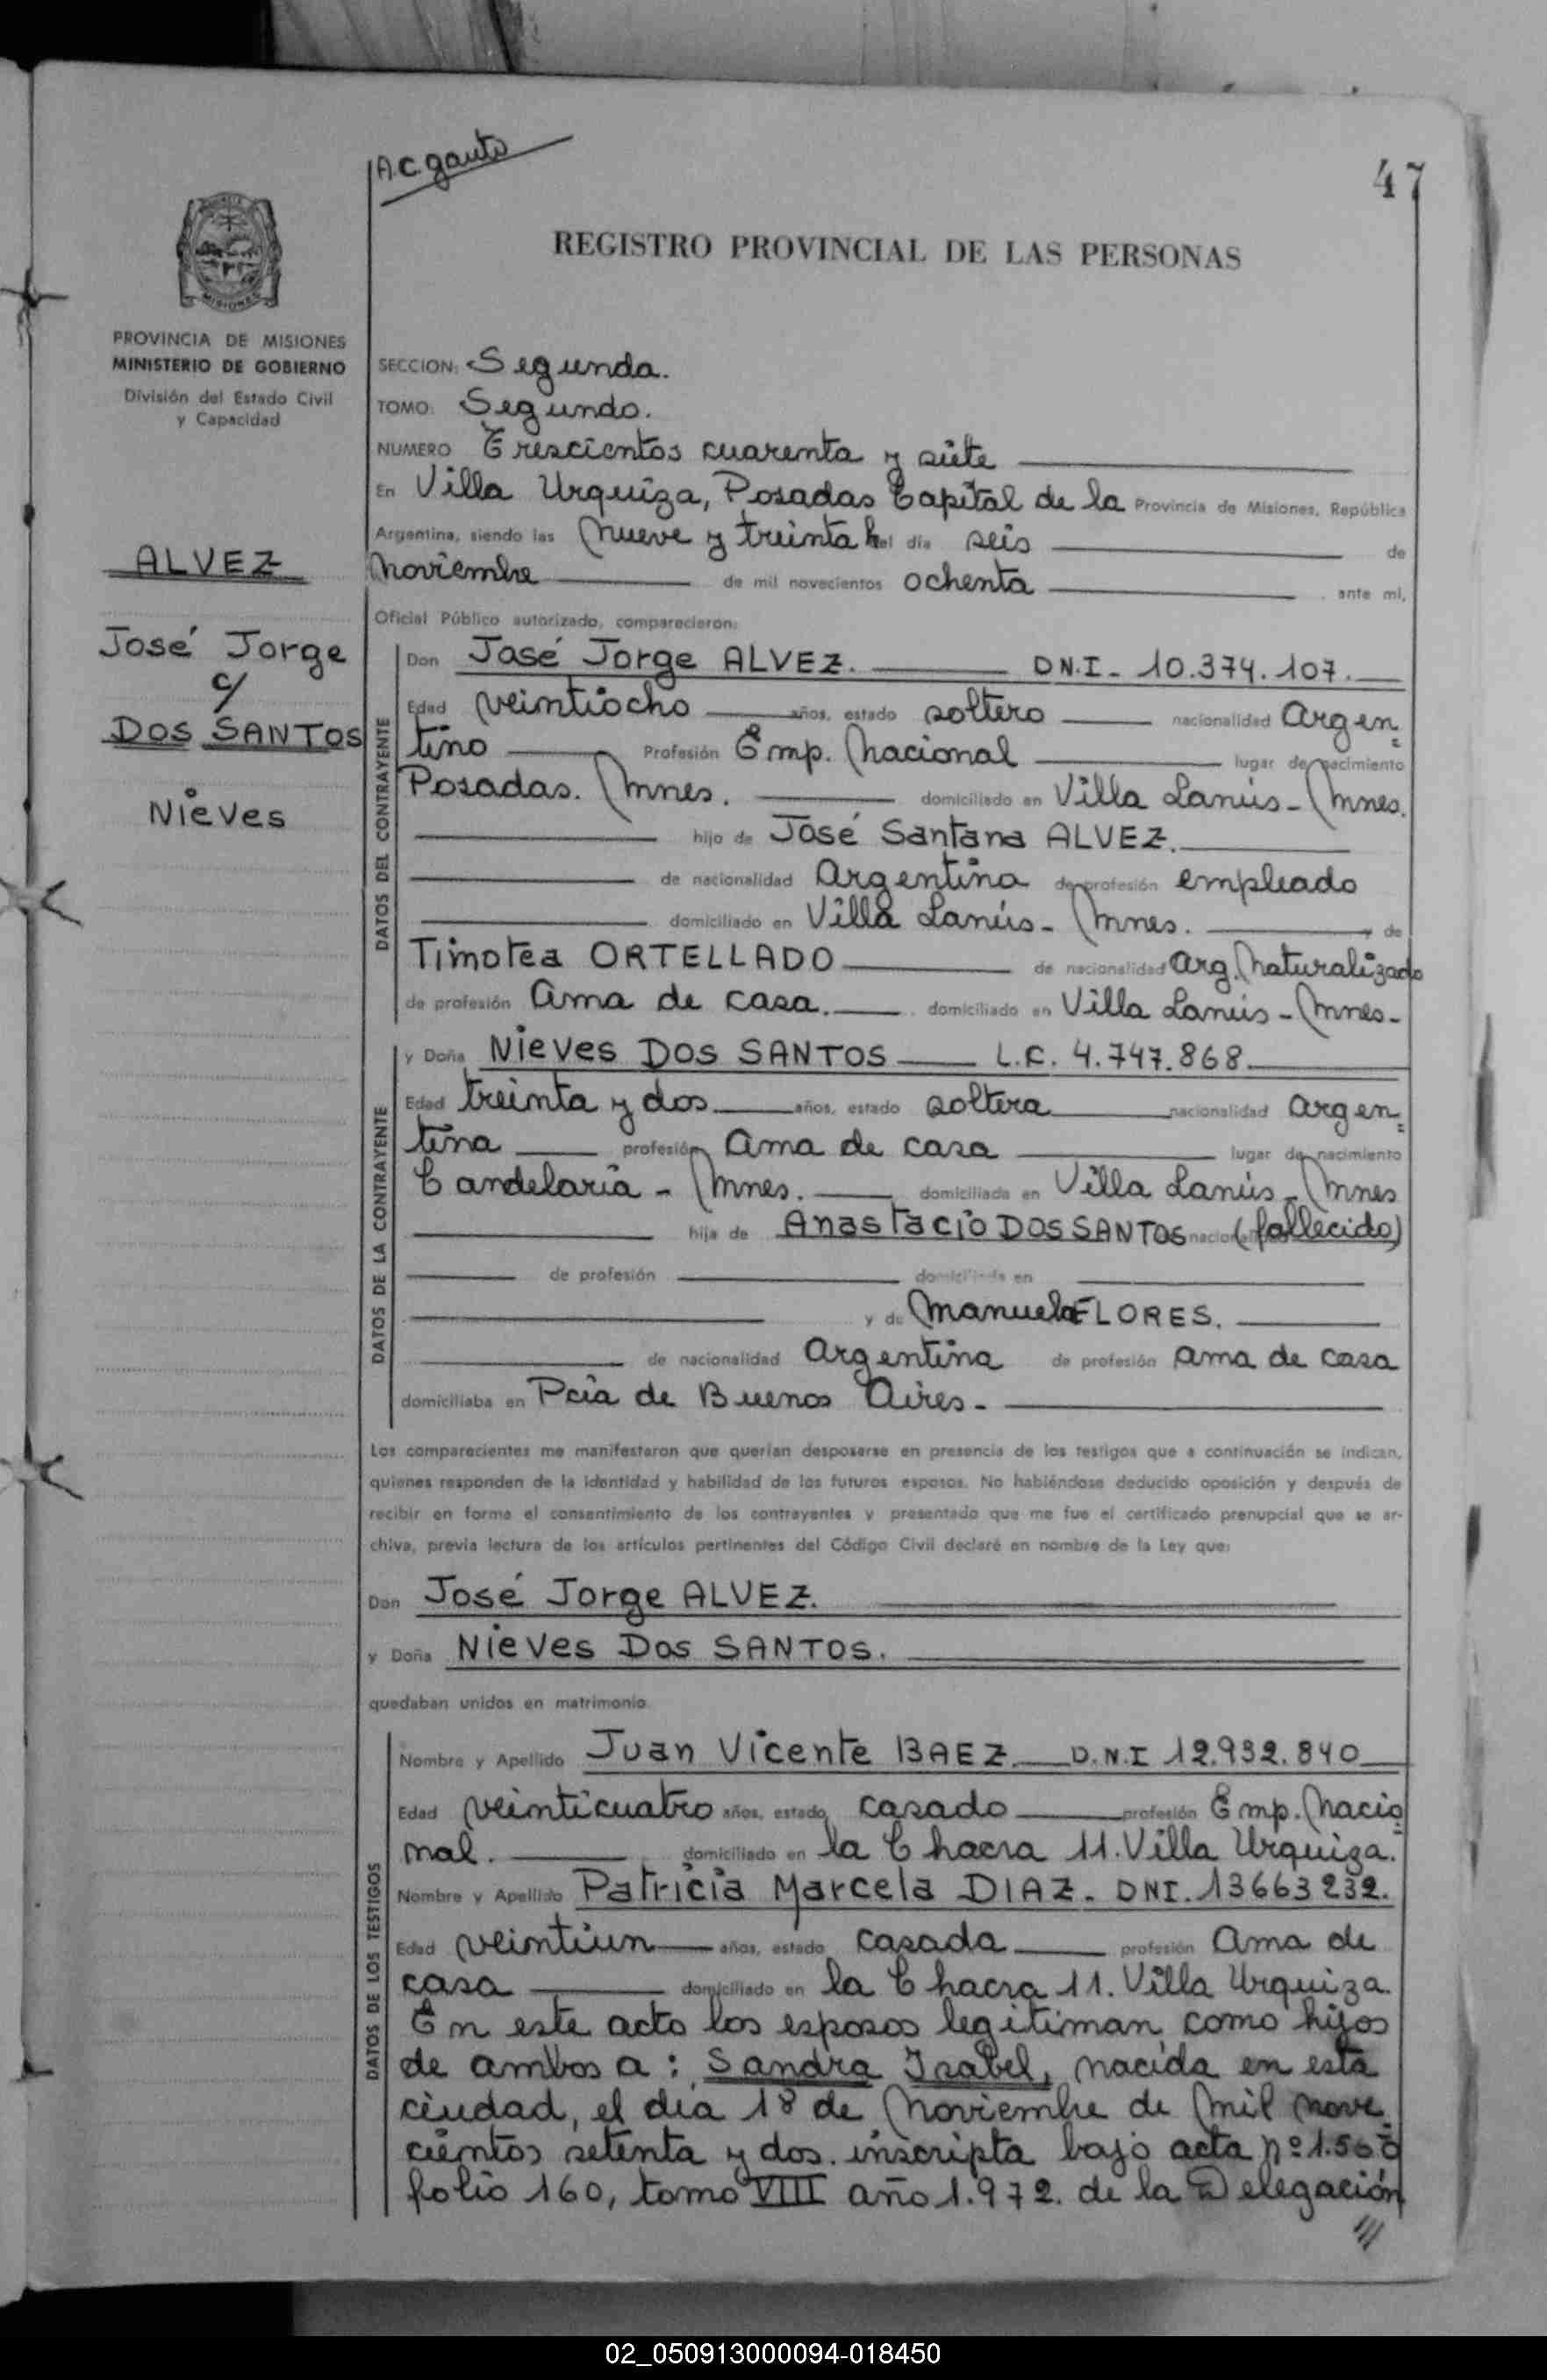 A.C. gauto
47
REGISTRO PROVINCIAL DE LAS PERSONAS
MISIONES
PROVINCIA DE MISIONES
MINISTERIO DE GOBIERNO
División del Estado Civil
y Capacidad
ALVEZ
José Jorge
c/
DOS SANTOS
Nieves
SECCION: Segunda.
TOMO: Segundo.
NUMERO Trescientos cuarenta y siete
En Villa Urquiza, Posadas Capital de la Provincia de Misiones, República
Argentina, siendo las Nueve y treinta h el día seis de
Noviembre de mil novecientos ochenta ante mí,
Oficial Público autorizado, comparecieron:
DATOS DEL CONTRAYENTE
Don José Jorge ALVEZ. D.N.I - 10.374.107.
Edad veintiocho años, estado soltero nacionalidad Argen=
tino Profesión Emp. Nacional lugar de nacimiento
Posadas. Mnes. domiciliado en Villa Lanús - Mnes.
hijo de José Santana ALVEZ.
de nacionalidad Argentina de profesión empleado
domiciliado en Villa Lanús - Mnes. y de
Timotea ORTELLADO de nacionalidad Arg. Naturalizado
de profesión Ama de casa. domiciliado en Villa Lanús - Mnes -
DATOS DE LA CONTRAYENTE
y Doña Nieves DOS SANTOS L.C. 4.747.868.
Edad treinta y dos años, estado soltera nacionalidad Argen=
tina profesión Ama de casa lugar de nacimiento
Candelaria - Mnes. domiciliada en Villa Lanús - Mnes
hija de Anastacio DOS SANTOS (fallecido)
de profesión domiciliado en
y de Manuela FLORES.
de nacionalidad Argentina de profesión Ama de casa
domiciliaba en Pcia de Buenos Aires -
Los comparecientes me manifestaron que querían desposarse en presencia de los testigos que a continuación se indican,
quienes responden de la identidad y habilidad de los futuros esposos. No habiéndose deducido oposición y después de
recibir en forma el consentimiento de los contrayentes y presentado que me fue el certificado prenupcial que se ar-
chiva, previa lectura de los artículos pertinentes del Código Civil declaré en nombre de la Ley que:
Don José Jorge ALVEZ.
y Doña Nieves Dos SANTOS.
quedaban unidos en matrimonio.
DATOS DE LOS TESTIGOS
Nombre y Apellido Juan Vicente BAEZ. D.N.I 12.932.840
Edad veinticuatro años, estado casado profesión Emp. Nacio=
nal. domiciliado en la Chacra 11. Villa Urquiza.
Nombre y Apellido Patricia Marcela DIAZ. DNI. 13663232.
Edad veintiun años, estado casada profesión Ama de
casa domiciliado en la Chacra 11. Villa Urquiza.
En este acto los esposos legitiman como hijos
de ambos a: Sandra Isabel, nacida en esta
ciudad, el dia 18 de Noviembre de Mil nove=
cientos setenta y dos. inscripta bajo acta nº 1.560
folio 160, tomo VIII año 1.972. de la Delegación
///
02_050913000094-018450